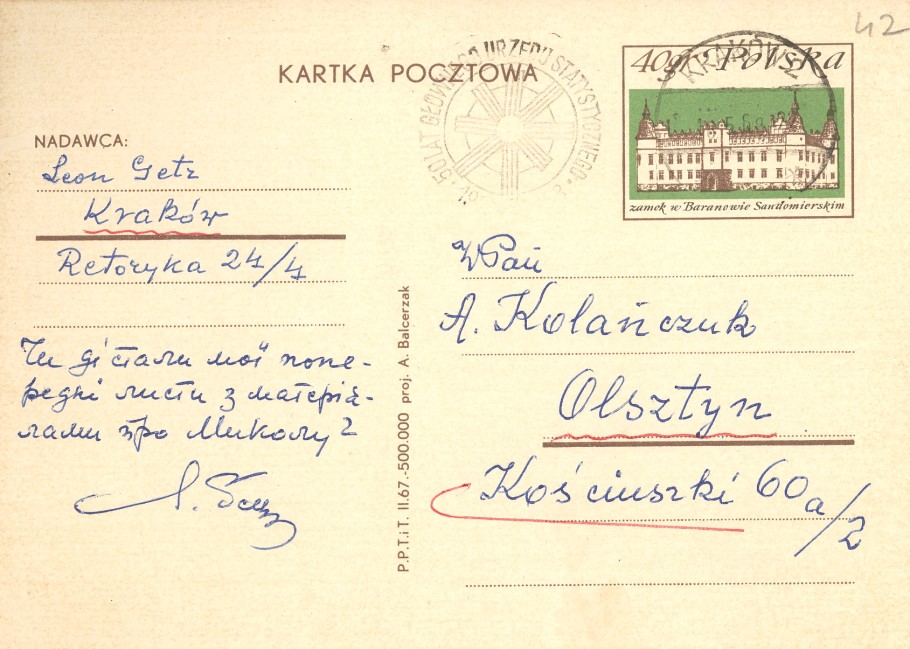 42
KARTKA POCZTOWA
50 LAT GŁÓWNEGO URZĘDU STATYSTYCZNEGO
40gr Polska
KRAKÓW 2
zamek w Baranowie Sandomierskim
NADAWCA:
Leon Getz
Kraków
Retoryka 24/4
Чи дістали мої попе-
редні листи з матерія-
лами про Миколу?
Л. Ґец
P.P.T.iT. II.67.-500.000 proj. A. Balcerzak
WPan
A. Kolańczuk
Olsztyn
Kościuszki 60a/2